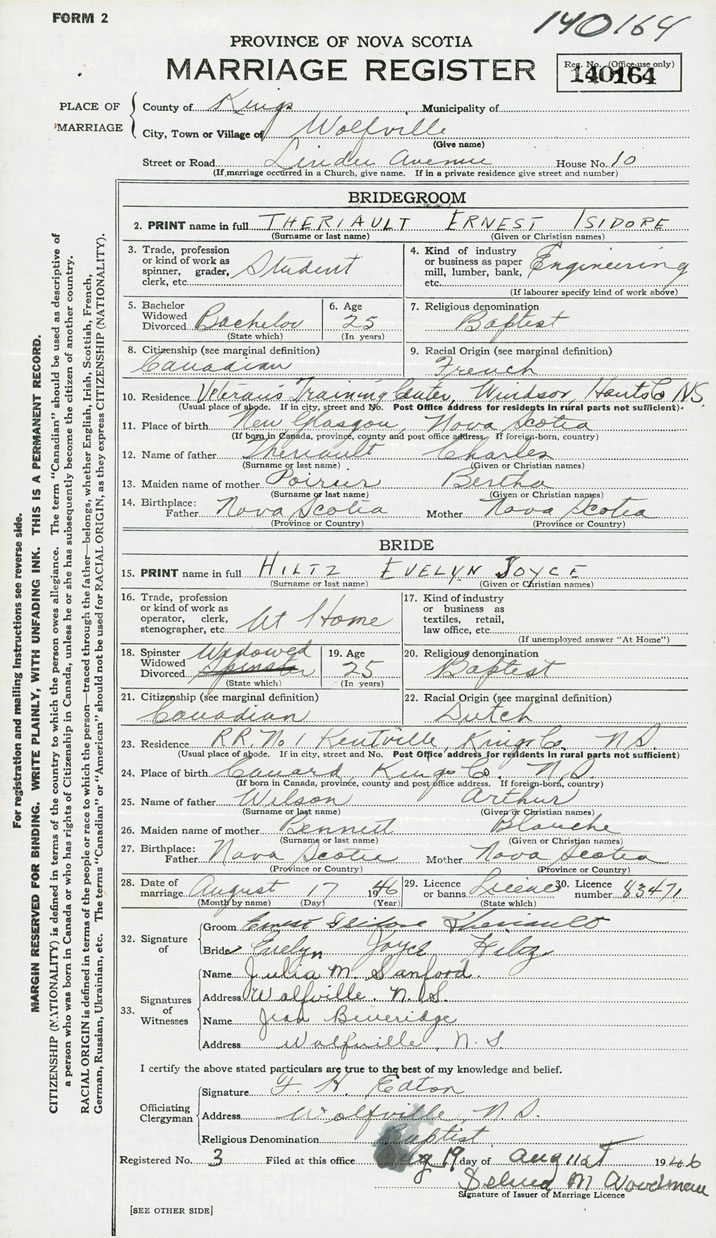 FORM 2
140164
PROVINCE OF NOVA SCOTIA
MARRIAGE REGISTER
Reg. No. (Office use only)
140164
PLACE OF MARRIAGE
County of Kings Municipality of
City, Town or Village of Wolfville
(Give name)
Street or Road Linden Avenue House No. 10
(If marriage occurred in a Church, give name. If in a private residence give street and number)
BRIDEGROOM
2. PRINT name in full THERIAULT ERNEST ISIDORE
(Surname or last name) (Given or Christian names)
3. Trade, profession or kind of work as spinner, grader, clerk, etc. Student
4. Kind of industry or business as paper mill, lumber, bank, etc. Engineering
(If labourer specify kind of work above)
5. Bachelor Widowed Divorced Bachelor
(State which)
6. Age 25
(In years)
7. Religious denomination
Baptist
8. Citizenship (see marginal definition)
Canadian
9. Racial Origin (see marginal definition)
French
10. Residence Veterans Training Center, Windsor, Hants Co NS.
(Usual place of abode. If in city, street and No. Post Office address for residents in rural parts not sufficient).
11. Place of birth New Glasgow, Nova Scotia
(If born in Canada, province, county and post office address. If foreign-born, country)
12. Name of father Theriault Charles
(Surname or last name) (Given or Christian names)
13. Maiden name of mother Poirier Bertha
(Surname or last name) (Given or Christian names)
14. Birthplace: Father Nova Scotia Mother Nova Scotia
(Province or Country) (Province or Country)
BRIDE
15. PRINT name in full HILTZ EVELYN JOYCE
(Surname or last name) (Given or Christian names)
16. Trade, profession or kind of work as operator, clerk, stenographer, etc. At Home
17. Kind of industry or business as textiles, retail, law office, etc.
(If unemployed answer "At Home")
18. Spinster Widowed Divorced Widowed
Spinster
(State which)
19. Age 25
(In years)
20. Religious denomination
Baptist
21. Citizenship (see marginal definition)
Canadian
22. Racial Origin (see marginal definition)
Dutch
23. Residence RR No 1 Kentville, Kings Co. N.S.
(Usual place of abode. If in city, street and No. Post Office address for residents in rural parts not sufficient)
24. Place of birth Canard, Kings Co. N.S.
(If born in Canada, province, county and post office address. If foreign-born, country)
25. Name of father Wilson Arthur
(Surname or last name) (Given or Christian names)
26. Maiden name of mother Bennett Blanche
(Surname or last name) (Given or Christian names)
27. Birthplace: Father Nova Scotia Mother Nova Scotia
(Province or Country) (Province or Country)
28. Date of marriage August 17 1946
(Month by name) (Day) (Year)
29. Licence or banns License
(State which)
30. Licence number 83471
32. Signature of
Groom Ernest Isidore Theriault
Bride Evelyn Joyce Hiltz
33. Signatures of Witnesses
Name Julia M. Sanford.
Address Wolfville, N.S.
Name Jean Beveridge
Address Wolfville, N.S.
I certify the above stated particulars are true to the best of my knowledge and belief.
Officiating Clergyman
Signature F. H. Eaton
Address Wolfville, N.S.
Religious Denomination Baptist
Registered No. 3 Filed at this office Aug 19 day of August 1946
Selina M Woodman
Signature of Issuer of Marriage Licence
[SEE OTHER SIDE]
For registration and mailing instructions see reverse side.
MARGIN RESERVED FOR BINDING. WRITE PLAINLY, WITH UNFADING INK. THIS IS A PERMANENT RECORD.
CITIZENSHIP (NATIONALITY) is defined in terms of the country to which the person owes allegiance. The term "Canadian" should be used as descriptive of
a person who was born in Canada or who has rights of Citizenship in Canada, unless he or she has subsequently become the citizen of another country.
RACIAL ORIGIN is defined in terms of the people or race to which the person—traced through the father—belongs, whether English, Irish, Scottish, French,
German, Russian, Ukrainian, etc. The terms "Canadian" or "American" should not be used for RACIAL ORIGIN, as they express CITIZENSHIP (NATIONALITY).